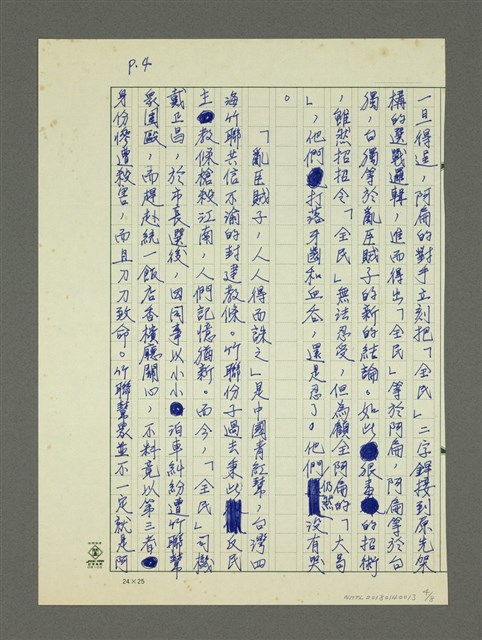 P.4
一旦得逞，阿扁的對手立刻把「全民」二字銲接到原先架
構的選戰邏輯，進而得出「全民」等於阿扁，阿扁等於台
獨，台獨等於亂臣賊子的新的結論。如此狠毒的招術
，雖然招招令「全民」無法忍受，但為顧全阿扁的「大局
」，他們打落牙齒和血吞，還是忍了。他們仍然沒有哭
。
「亂臣賊子，人人得而誅之」是中國青紅幫，台灣四
海竹聯共信不渝的封建教條。竹聯份子過去秉此反民
主教條槍殺江南，人們記憶猶新。而今，「全民」司機
戴正昌，於市長選後，因同事以小小泊車糾紛遭竹聯幫
眾圍毆，而趕赴統一飯店香檳廳關心，不料竟以第三者
身份慘遭殺害，而且刀刀致命。竹聯幫眾並不一定就是阿
24×25
NMTL20180140013
4/8